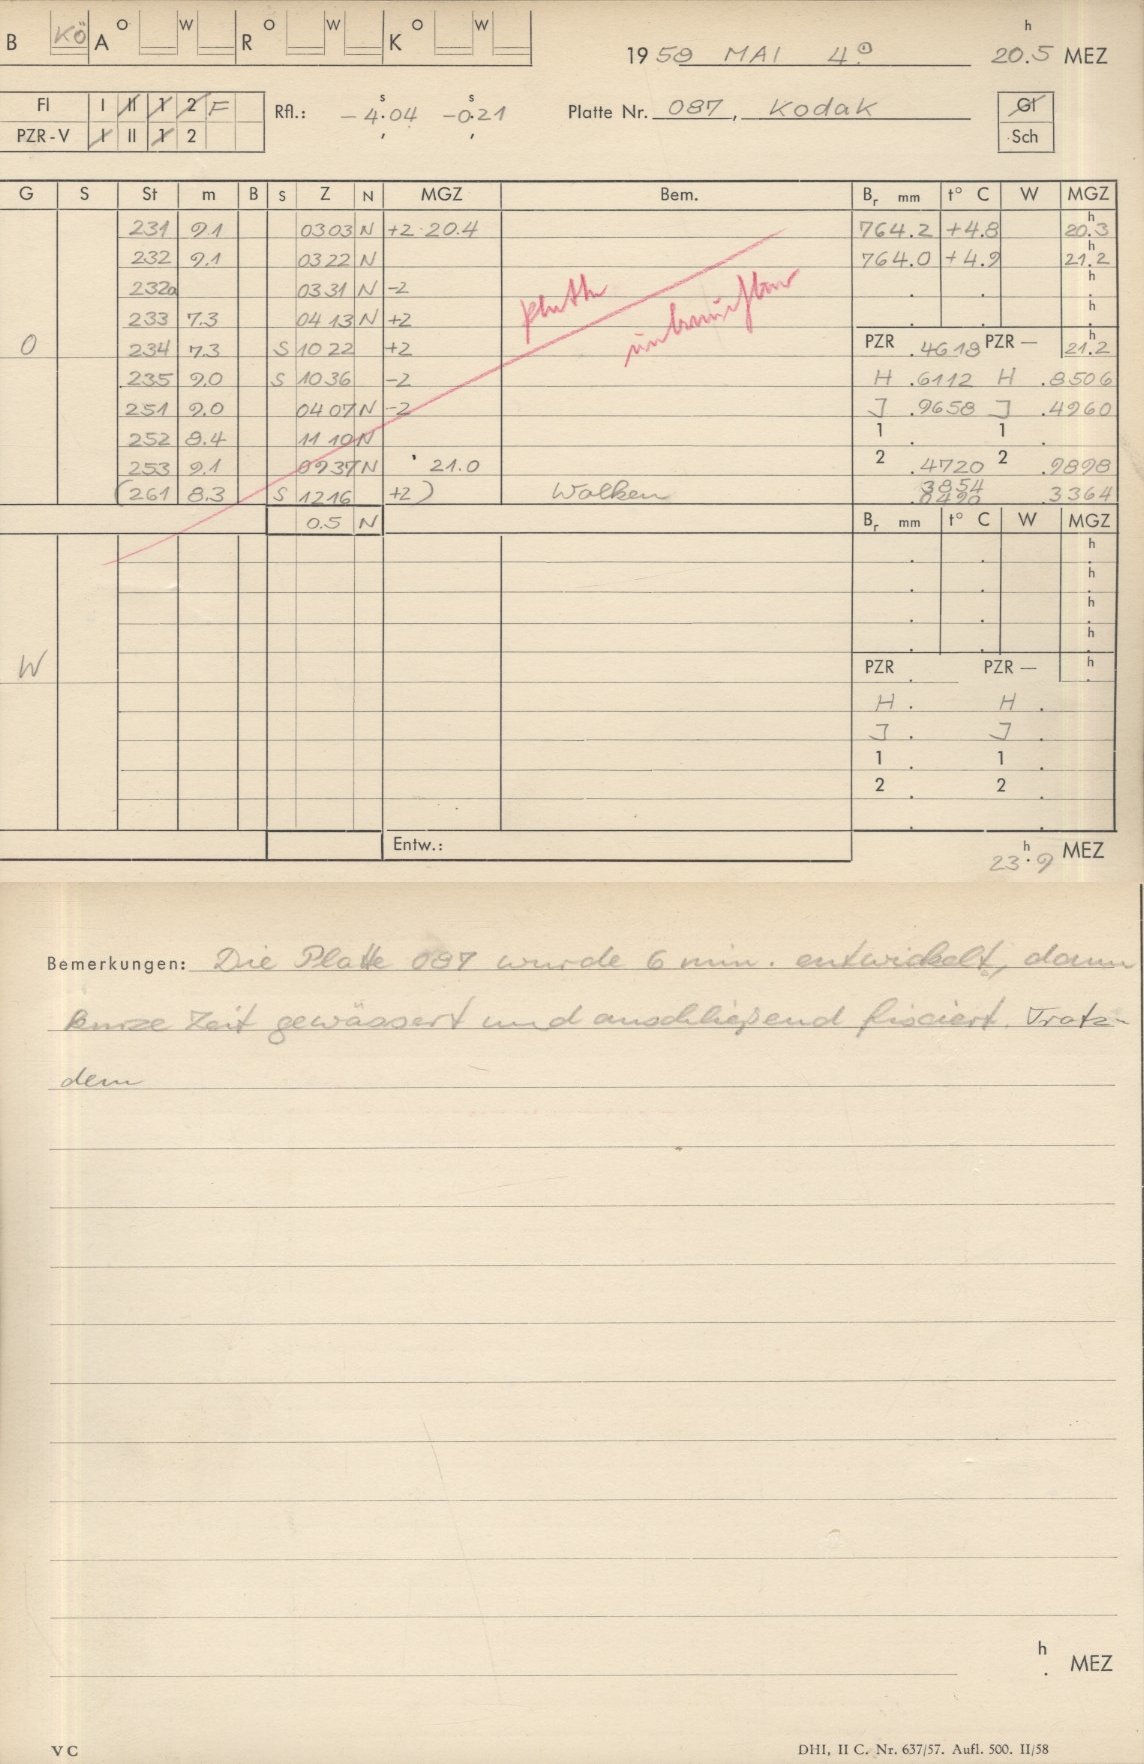 B KÖ A O W R O W K O W
19 59 MAI 4. h 20.5 MEZ
Fl I II 1 2 F
PZR-V I II 1 2
Rfl.: - 4.s04 -0.s21
Platte Nr. 087, Kodak
Gl
Sch
G S St m B S Z N MGZ Bem. Br mm t° C W MGZ
231 9.1 03 03 N +2 20.4 764.2 +4.8 20.h3
232 9.1 03 22 N 764.0 +4.9 21.h2
232a 03 31 N -2 h
233 7.3 04 13 N +2 h
O 234 7.3 S 10 22 +2 PZR .4618 PZR — 21.h2
235 9.0 S 10 36 -2 H .6112 H .8506
251 9.0 04 07 N -2 J .9658 J .4960
252 8.4 11 10 N 1 . 1 .
253 9.1 09 37 N 21.0 2 .4720 2 .9898
(261 8.3 S 12 16 +2) Wolken 3854 .0490 .3364
Platte unbrauchbar
0.5 N Br mm t° C W MGZ
h
h
h
h
W PZR . PZR — h
H . H .
J . J .
1 . 1 .
2 . 2 .
Entw.:
23.h9 MEZ
Bemerkungen: Die Platte 087 wurde 6 min. entwickelt, dann
kurze Zeit gewässert und anschließend fixiert. Trotz-
dem
h . MEZ
V C DHI, II C. Nr. 637/57. Aufl. 500. II/58